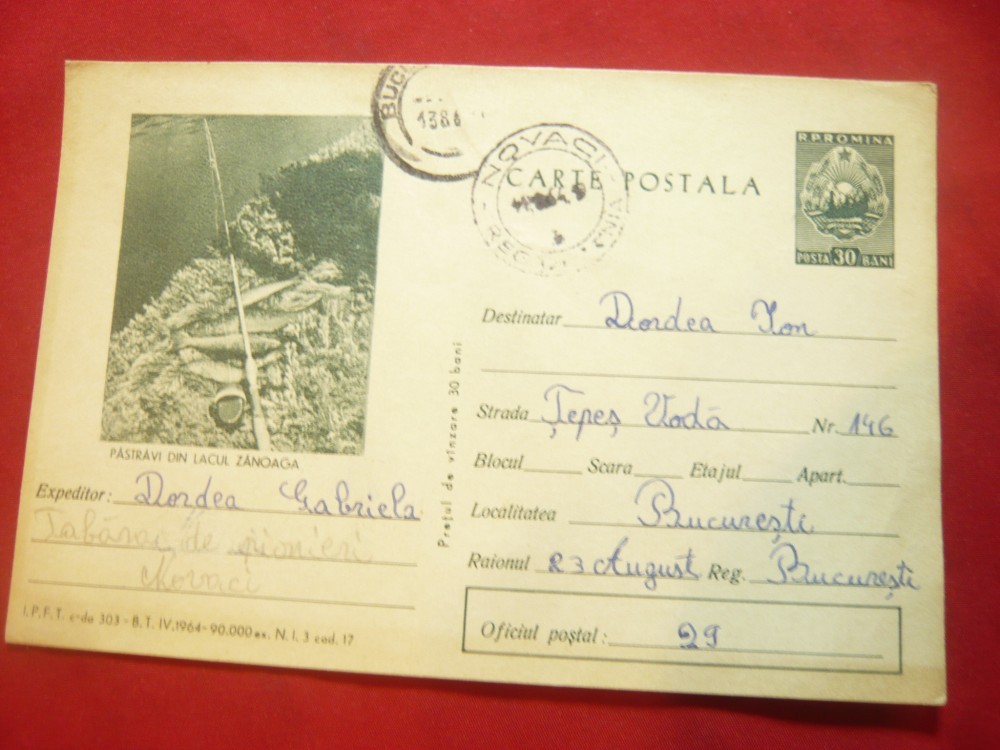 BUC
1386
NOVACI
REG
CARTE POSTALA
R.P.ROMINA
POSTA 30 BANI
PĂSTRĂVI DIN LACUL ZĂNOAGA
Expeditor: Dordea Gabriela
de pionieri
Novaci
I.P.F.T. c-da 303 - B.T. IV.1964 - 90.000 ex. N.I. 3 cod. 17
Prețul de vînzare 30 bani
Destinatar Dordea Ion
Strada Țepeș Vodă Nr. 146
Blocul Scara Etajul Apart.
Localitatea București
Raionul 23 August Reg. București
Oficiul poștal: 29